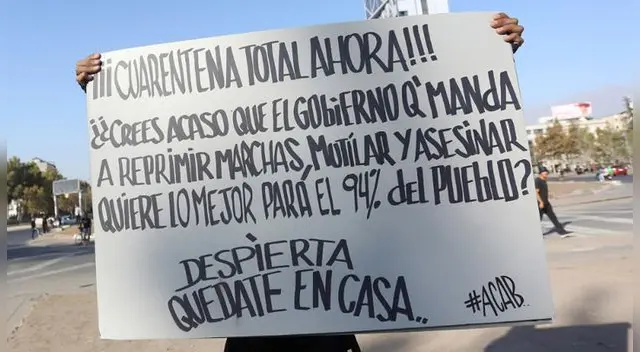 ¡¡¡CUARENTENA TOTAL AHORA!!!
¿¿CREES ACASO QUE EL GObiERNO Q' MANdA
A REPRIMIR MARCHAS, MUTÍLAR Y ASESINAR
QUIERE LO MEJOR PARÁ EL 94% del PUEbLO?
DESPÌERTA
QUEDATE EN CASA..
#ACAB..